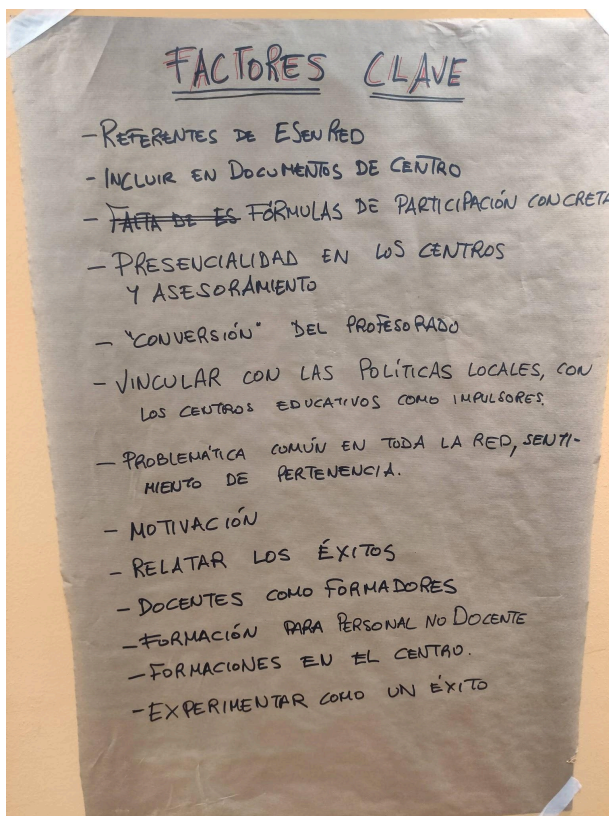 FACTORES CLAVE
- REFERENTES DE ESENRED
- INCLUIR EN DOCUMENTOS DE CENTRO
- FALTA DE ES FÓRMULAS DE PARTICIPACIÓN CONCRETA
- PRESENCIALIDAD EN LOS CENTROS
Y ASESORAMIENTO
- "CONVERSIÓN" DEL PROFESORADO
- VINCULAR CON LAS POLÍTICAS LOCALES, CON
LOS CENTROS EDUCATIVOS COMO IMPULSORES.
- PROBLEMÁTICA COMÚN EN TODA LA RED, SENTI-
MIENTO DE PERTENENCIA.
- MOTIVACIÓN
- RELATAR LOS ÉXITOS
- DOCENTES COMO FORMADORES
- FORMACIÓN PARA PERSONAL NO DOCENTE
- FORMACIONES EN EL CENTRO.
- EXPERIMENTAR COMO UN ÉXITO